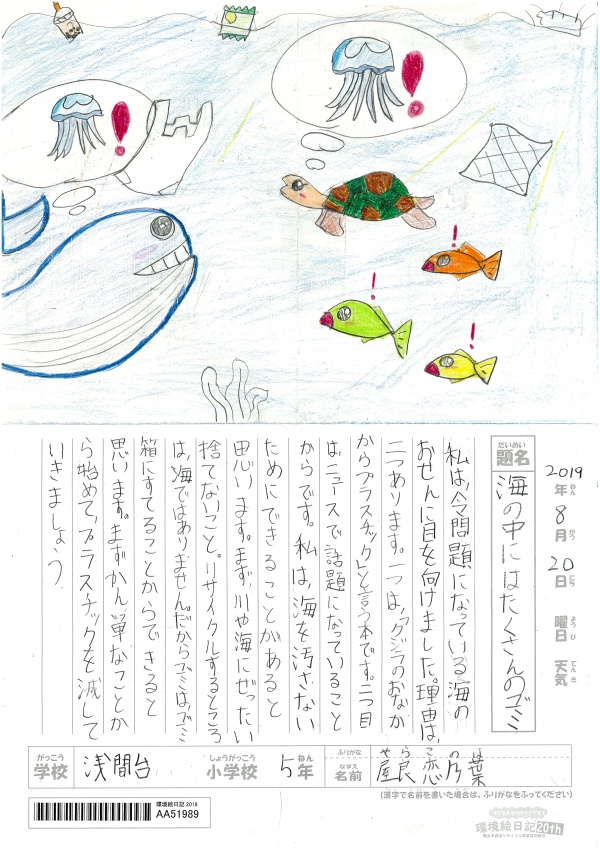 2019年8月20日 曜日 天気
ねん がつ にち ようび てんき
だいめい
題名
海の中にはたくさんのゴミ
私は、今問題になっている海の
おせんに目を向けました。理由は、
二つあります。一つは、「クジラのおなか
からプラスチック」と言う本です。二つ目
は、ニュースで話題になっていること
からです。私は、海を汚さない
ためにできることがあると
思います。まず、川や海にぜったい
捨てないこと。リサイクルするところ
は、海ではありません。だからゴミは、ゴミ
箱にすてることからできると
思います。まずかん単なことか
ら始めて、プラスチックを減して
いきましょう。
がっこう しょうがっこう ねん ふりがな や ら こ の は
学校 浅間台 小学校 5年 なまえ 名前 屋良恋乃葉
(漢字で名前を書いた場合は、ふりがなをふってください)
環境絵日記 2019
AA51989
環境絵日記20th